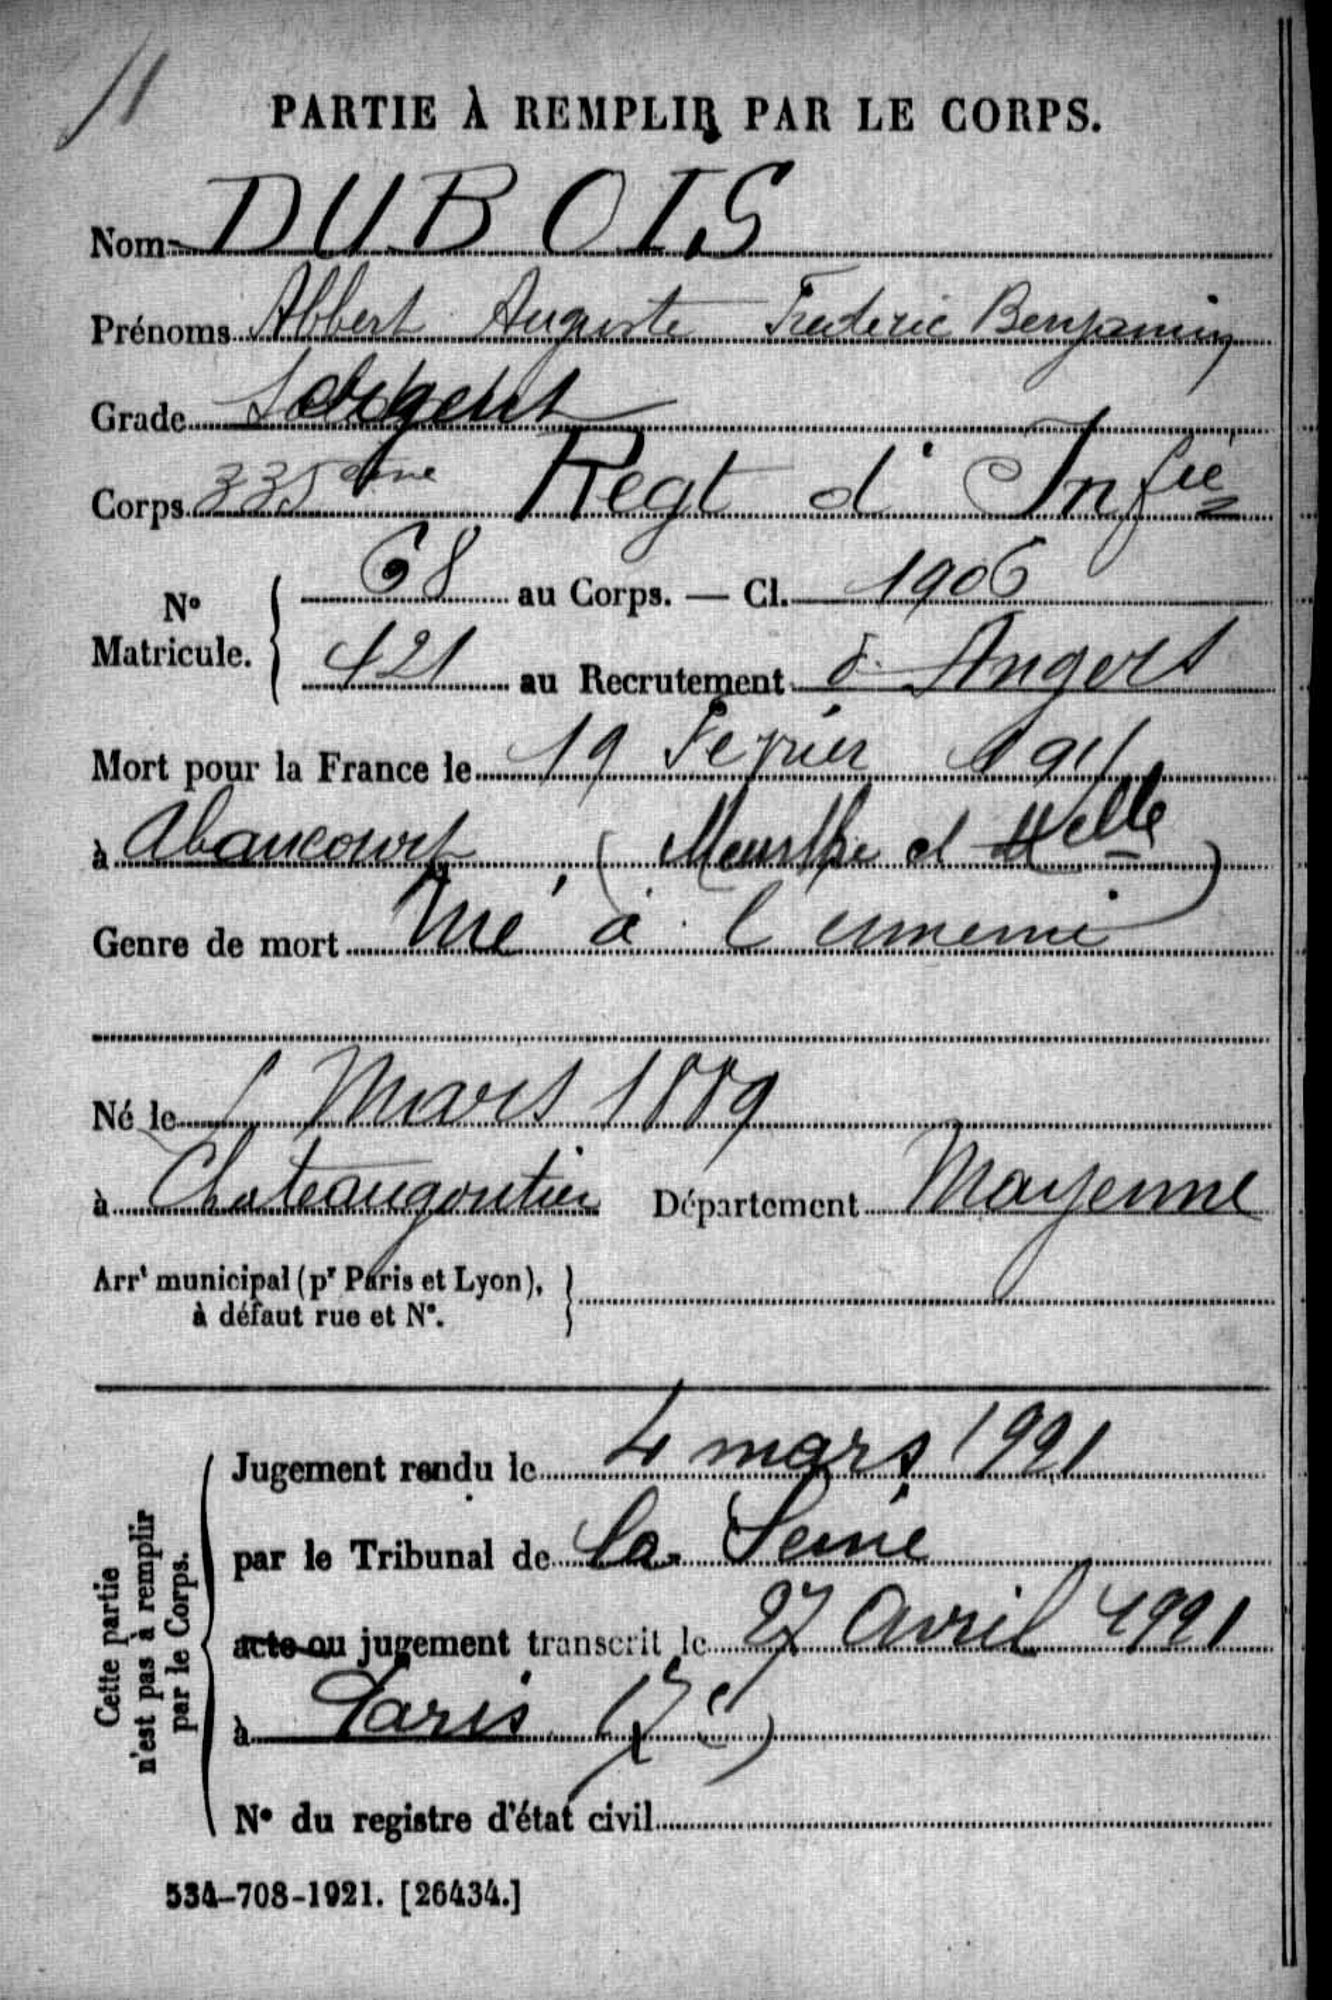 11
PARTIE À REMPLIR PAR LE CORPS.
Nom DUBOIS
Prénoms Albert Auguste Frederic Benjamin
Grade Sergent
Corps 335ème Regt d'Infie
N° Matricule. 68 au Corps. — Cl. 1906
421 au Recrutement d'Angers
Mort pour la France le 19 Février
à Abaucourt (Meurthe et Melle)
Genre de mort Tué à l'ennemi
Né le 1 Mars 1889
à Chateaugontier Département Mayenne
Arrt municipal (pr Paris et Lyon),
à défaut rue et N°.
Cette partie
n'est pas à remplir
par le Corps.
Jugement rendu le 4 mars 1921
par le Tribunal de La Seine
acte ou jugement transcrit le 27 avril 1921
à Paris (7e)
N° du registre d'état civil
534-708-1921. [26434.]